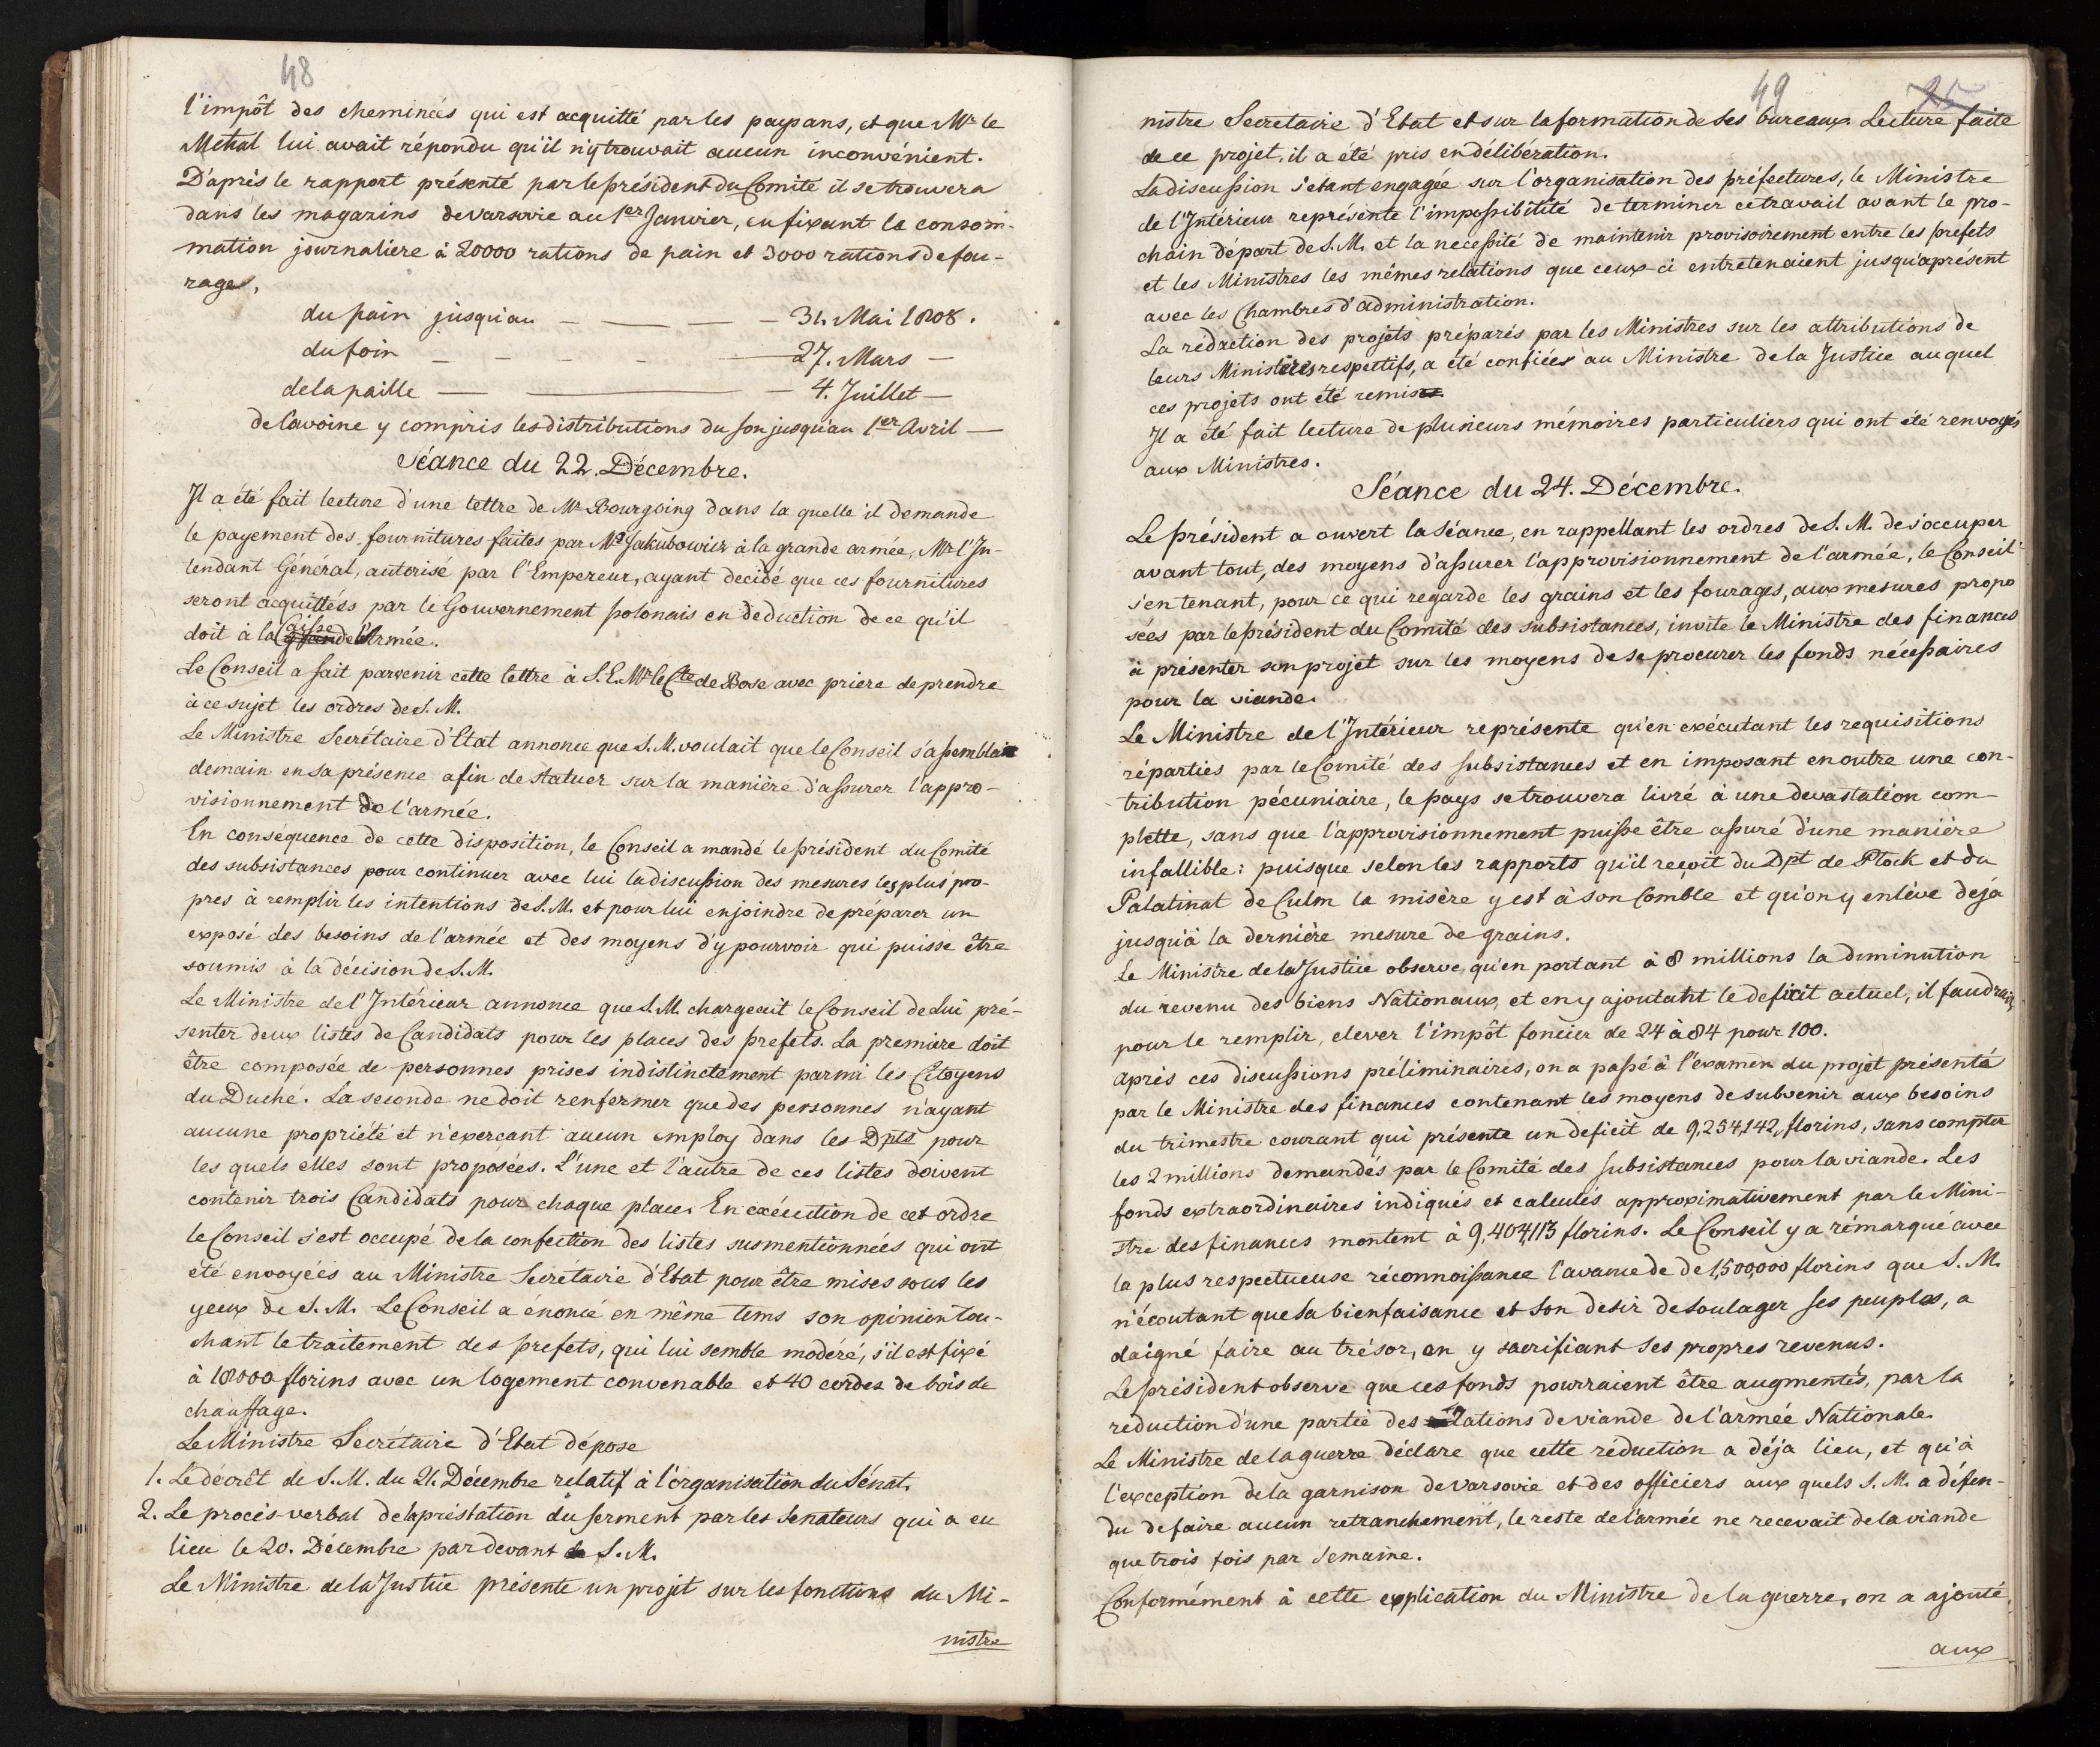 48
l'impôt des cheminées qui est acquitté par les paysans, et que Mr le
Mchal lui avait répondu qu'il n'y trouvait aucun inconvénient.
D'après le rapport présenté par le président du Comité il se trouvera
dans les magazins de varsovie au 1er Janvier, en fixant la consom-
mation journaliere à 20000 rations de pain et 3000 rations de fou-
rages,
du pain jusqu'au — — — — 31. Mai 1808.
du foin — — — — — 27. Mars —
de la paille — — — 4. Juillet —
de l'avoine y compris les distributions du son jusqu'au 1er Avril —
Séance du 22. Décembre.
Il a été fait lecture d'une lettre de Mr Bourgoing dans la quelle il demande
le payement des fournitures faites par Mr Jakubowicz à la grande armée, Mr l'In-
tendant Général, autorisé par l'Empereur, ayant decidé que ces fournitures
seront acquittées par le Gouvernement polonais en deduction de ce qu'il
doit à la Caisse de l'Armée.
Le Conseil a fait parvenir cette lettre à S. E. Mr le Cte de Bose avec priere de prendre
à ce sujet les ordres de S. M.
Le Ministre Secrétaire d'Etat annonce que S. M. voulait que le Conseil s'assemblat
demain en sa présence afin de statuer sur la manière d'assurer l'appro-
visionnement de l'armée.
En conséquence de cette disposition, le Conseil a mandé le président du Comité
des subsistances pour continuer avec lui la discussion des mesures les plus pro-
pres à remplir les intentions de S. M. et pour lui enjoindre de préparer un
exposé des besoins de l'armée et des moyens d'y pourvoir qui puisse être
soumis à la décision de S. M.
Le Ministre de l'Intérieur annonce que S. M. chargeait le Conseil de Lui pré-
senter deux listes de Candidats pour les places des prefets. La premiere doit
être composée de personnes prises indistinctement parmi les Citoyens
du Duché. La seconde ne doit renfermer que des personnes n'ayant
aucune propriété et n'exerçant aucun employ dans les Dpts pour
les quels elles sont proposées. L'une et l'autre de ces listes doivent
contenir trois Candidats pour chaque place. En exécution de cet ordre
le Conseil s'est occupé de la confection des listes susmentionnées qui ont
été envoyées au Ministre Secretaire d'Etat pour être mises sous les
yeux de S. M. Le Conseil a énoncé en même tems son opinion tou-
chant le traitement des prefets, qui lui semble modéré, s'il est fixé
à 18000 florins avec un logement convenable et 40 cordes de bois de
chauffage.
Le Ministre Secrétaire d'Etat dépose
1. Le décrêt de S. M. du 21. Décembre relatif à l'organisation du Sénat.
2. Le procès-verbal de la préstation du serment par les Senateurs qui a eu
lieu le 20. Décembre par devant S. M.
Le Ministre de la Justice présente un projet sur les fonctions du Mi-
nistre
49
25
nistre Secretaire d'Etat et sur la formation de ses bureaux. Lecture faite
de ce projet, il a été pris en délibération.
La discussion s'etant engagée sur l'organisation des préfectures, le Ministre
de l'Intérieur représente l'impossibilité de terminer ce travail avant le pro-
chain départ de S. M. et la necessité de maintenir provisoirement entre les prefets
et les Ministres les mêmes relations que ceux-ci entretenaient jusqu'aprésent
avec les Chambres d'administration.
La rédaction des projets préparés par les Ministres sur les attributions de
leurs Ministères respectifs, a été confiées au Ministre de la Justice au quel
ces projets ont été remis
Il a été fait lecture de plusieurs mémoires particuliers qui ont été renvoyés
aux Ministres.
Séance du 24. Décembre.
Le président a ouvert la séance, en rappellant les ordres de S. M. de s'occuper
avant tout, des moyens d'assurer l'approvisionnement de l'armée, le Conseil
s'en tenant, pour ce qui regarde les grains et les fourages, aux mesures propo
sées par le président du Comité des subsistances, invite le Ministre des finances
à présenter son projet sur les moyens de se procurer les fonds nécessaires
pour la viande.
Le Ministre de l'Intérieur représente qu'en exécutant les requisitions
réparties par le Comité des subsistances et en imposant en outre une con-
tribution pécuniaire, le pays se trouvera livré à une devastation com-
plette, sans que l'approvisionnement puisse être assuré d'une manière
infallible: puisque selon les rapports qu'il reçoit du Dpt de Plock et du
Palatinat de Culm la misère y est à son Comble et qu'on y enlève deja
jusqu'à la dernière mesure de grains.
Le Ministre de la Justice observe, qu'en portant à 8 millions la diminution
du revenu des biens Nationaux, et en y ajoutant le deficit actuel, il faudrait,
pour le remplir, elever l'impôt foncier de 24 à 84 pour 100.
Après ces discussions préliminaires, on a passé à l'examen du projet présenté
par le Ministre des finances contenant les moyens de subvenir aux besoins
du trimestre courant qui présente un deficit de 9,254,142, florins, sans compter
les 2 millions demandés par le Comité des subsistances pour la viande. Les
fonds extraordinaires indiqués et calculés approximativement par le Mini-
stre des finances montent à 9,404,113 florins. Le Conseil y a rémarqué avec
la plus respectueuse réconnoissance l'avance de de 1,500,000 florins que S. M.
n'écoutant que sa bienfaisance et son desir de soulager ses peuples, a
daigné faire au trésor, en y sacrifiant ses propres revenus.
Le président observe que ces fonds pourraient être augmentés, par la
reduction d'une partie des rations de viande de l'armée Nationale.
Le Ministre de la guerre déclare que cette réduction a déja lieu, et qu'à
l'exception de la garnison de varsovie et des officiers aux quels S. M. a défen-
du de faire aucun retranchement, le reste de l'armée ne recevait de la viande
que trois fois par semaine.
Conformément à cette explication du Ministre de la guerre, on a ajouté
aux